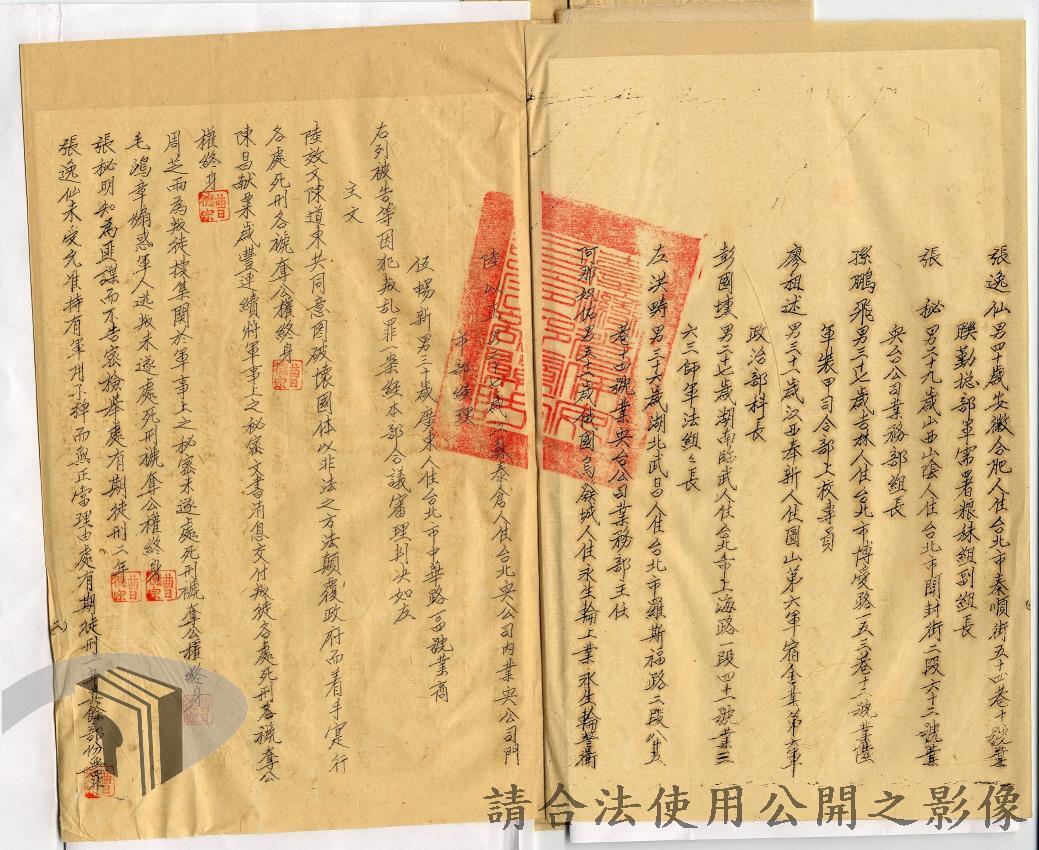 張逸仙男四十歲安徽合肥人住台北市泰順街五十四巷十號業
聯勤總部軍需署粮秣組副組長
張 秘男三十九歲山西山陰人住台北市開封街二段六十二號業
央台公司業務部組長
孫鵬飛男三十七歲吉林人住台北市博愛路一五三巷十二號業陸
軍裝甲司令部上校專員
廖祖述男三十八歲江西奉新人住圓山第六軍宿舍業第六軍
政治部科長
彭國壎男二十七歲湖南臨武人住台北市上海路一段四十一號業三
六三師軍法組組長
左洪疇男三十六歲湖北武昌人住台北市羅斯福路二段八十五
巷十四號業央台公司業務部主任
阿那奴佑男五十六歲俄國烏鐵城人住永生輪上業永生輪
陸以 男 歲 蘇泰倉人住台北央公司內業央公司門
市部經理
伍暢新男三十歲廣東人住台北市中華路一 號業商
右列被告等因犯叛乱罪一案經本部合議審理判决如左
主文
陸效文陳道東共同意圖破壞國体以非法之方法顛覆政府而着手寔行
各處死刑各褫奪公權終身
陳昌献葉歲豐連續將軍事上之秘密文書消息交付叛徒各處死刑各褫奪公
權終身
周芝雨為叛徒搜集關於軍事上之秘密未遂處死刑褫奪公權終身
毛鴻章煽惑軍人逃叛未遂處死刑褫奪公權終身
張秘明知為匪諜而不告密檢舉處有期徒刑二年
張逸仙未受允准持有軍用子彈而無正當理由處有期徒刑一年其餘部份無罪
請合法使用公開之影像